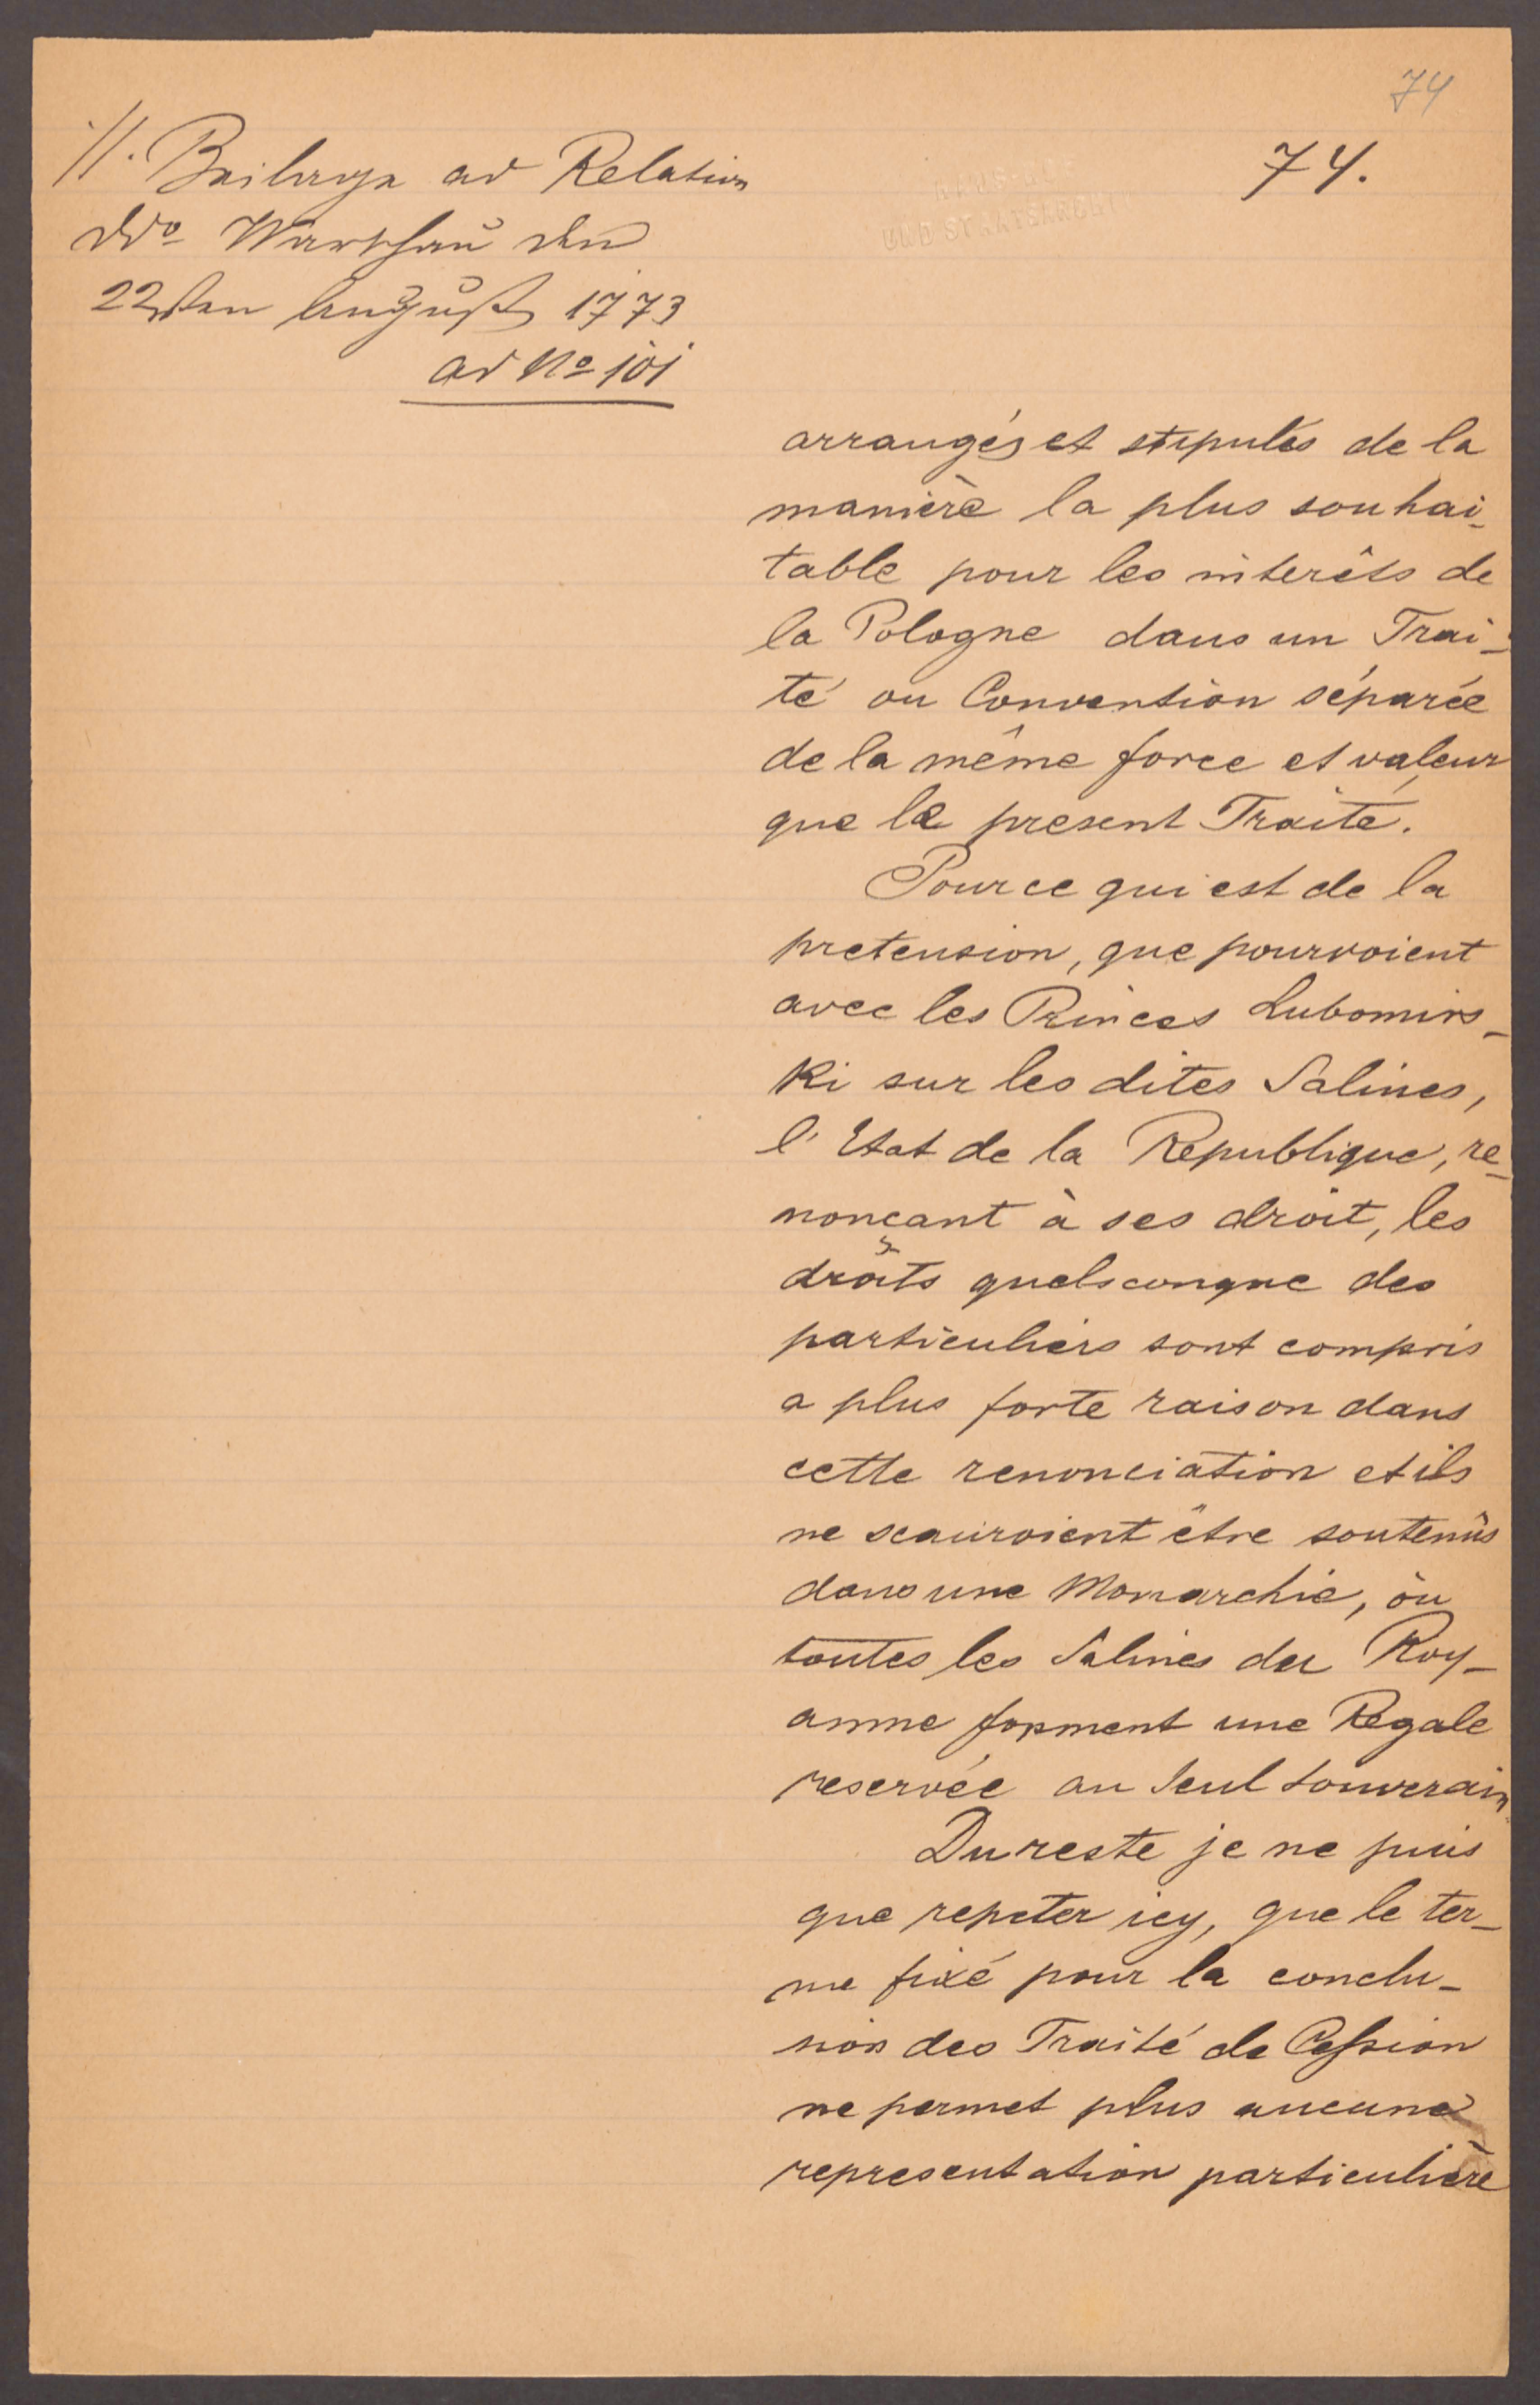 74
74.
//. Beilage ad Relation
ddo Warschau den
22sten August 1773
ad No 101
UND STAATSARCHIV
arrangés et stipulés de la
manière la plus souhai-
table pour les interêts de
la Pologne dans un Trai-
té ou Convention séparée
de la même force et valeur
que le present Traité.
Pour ce qui est de la
pretension, que pourroient
avec les Princes Lubomirs-
Ki sur les dites Salines,
l'Etat de la Republique, re-
nonçant à ses droit, les
droits quelsconque des
particuliers sont compris
a plus forte raison dans
cette renonciation et ils
ne scauroient être soutenûs
dans une Monarchie, òu
toutes les Salines du Roy-
aume forment une Regale
reservée au seul souverain.
Du reste je ne puis
que repeter icy, que le ter-
me fixé pour la conclu-
sion des Traité de Cession
ne permet plus aucune
representation particulière